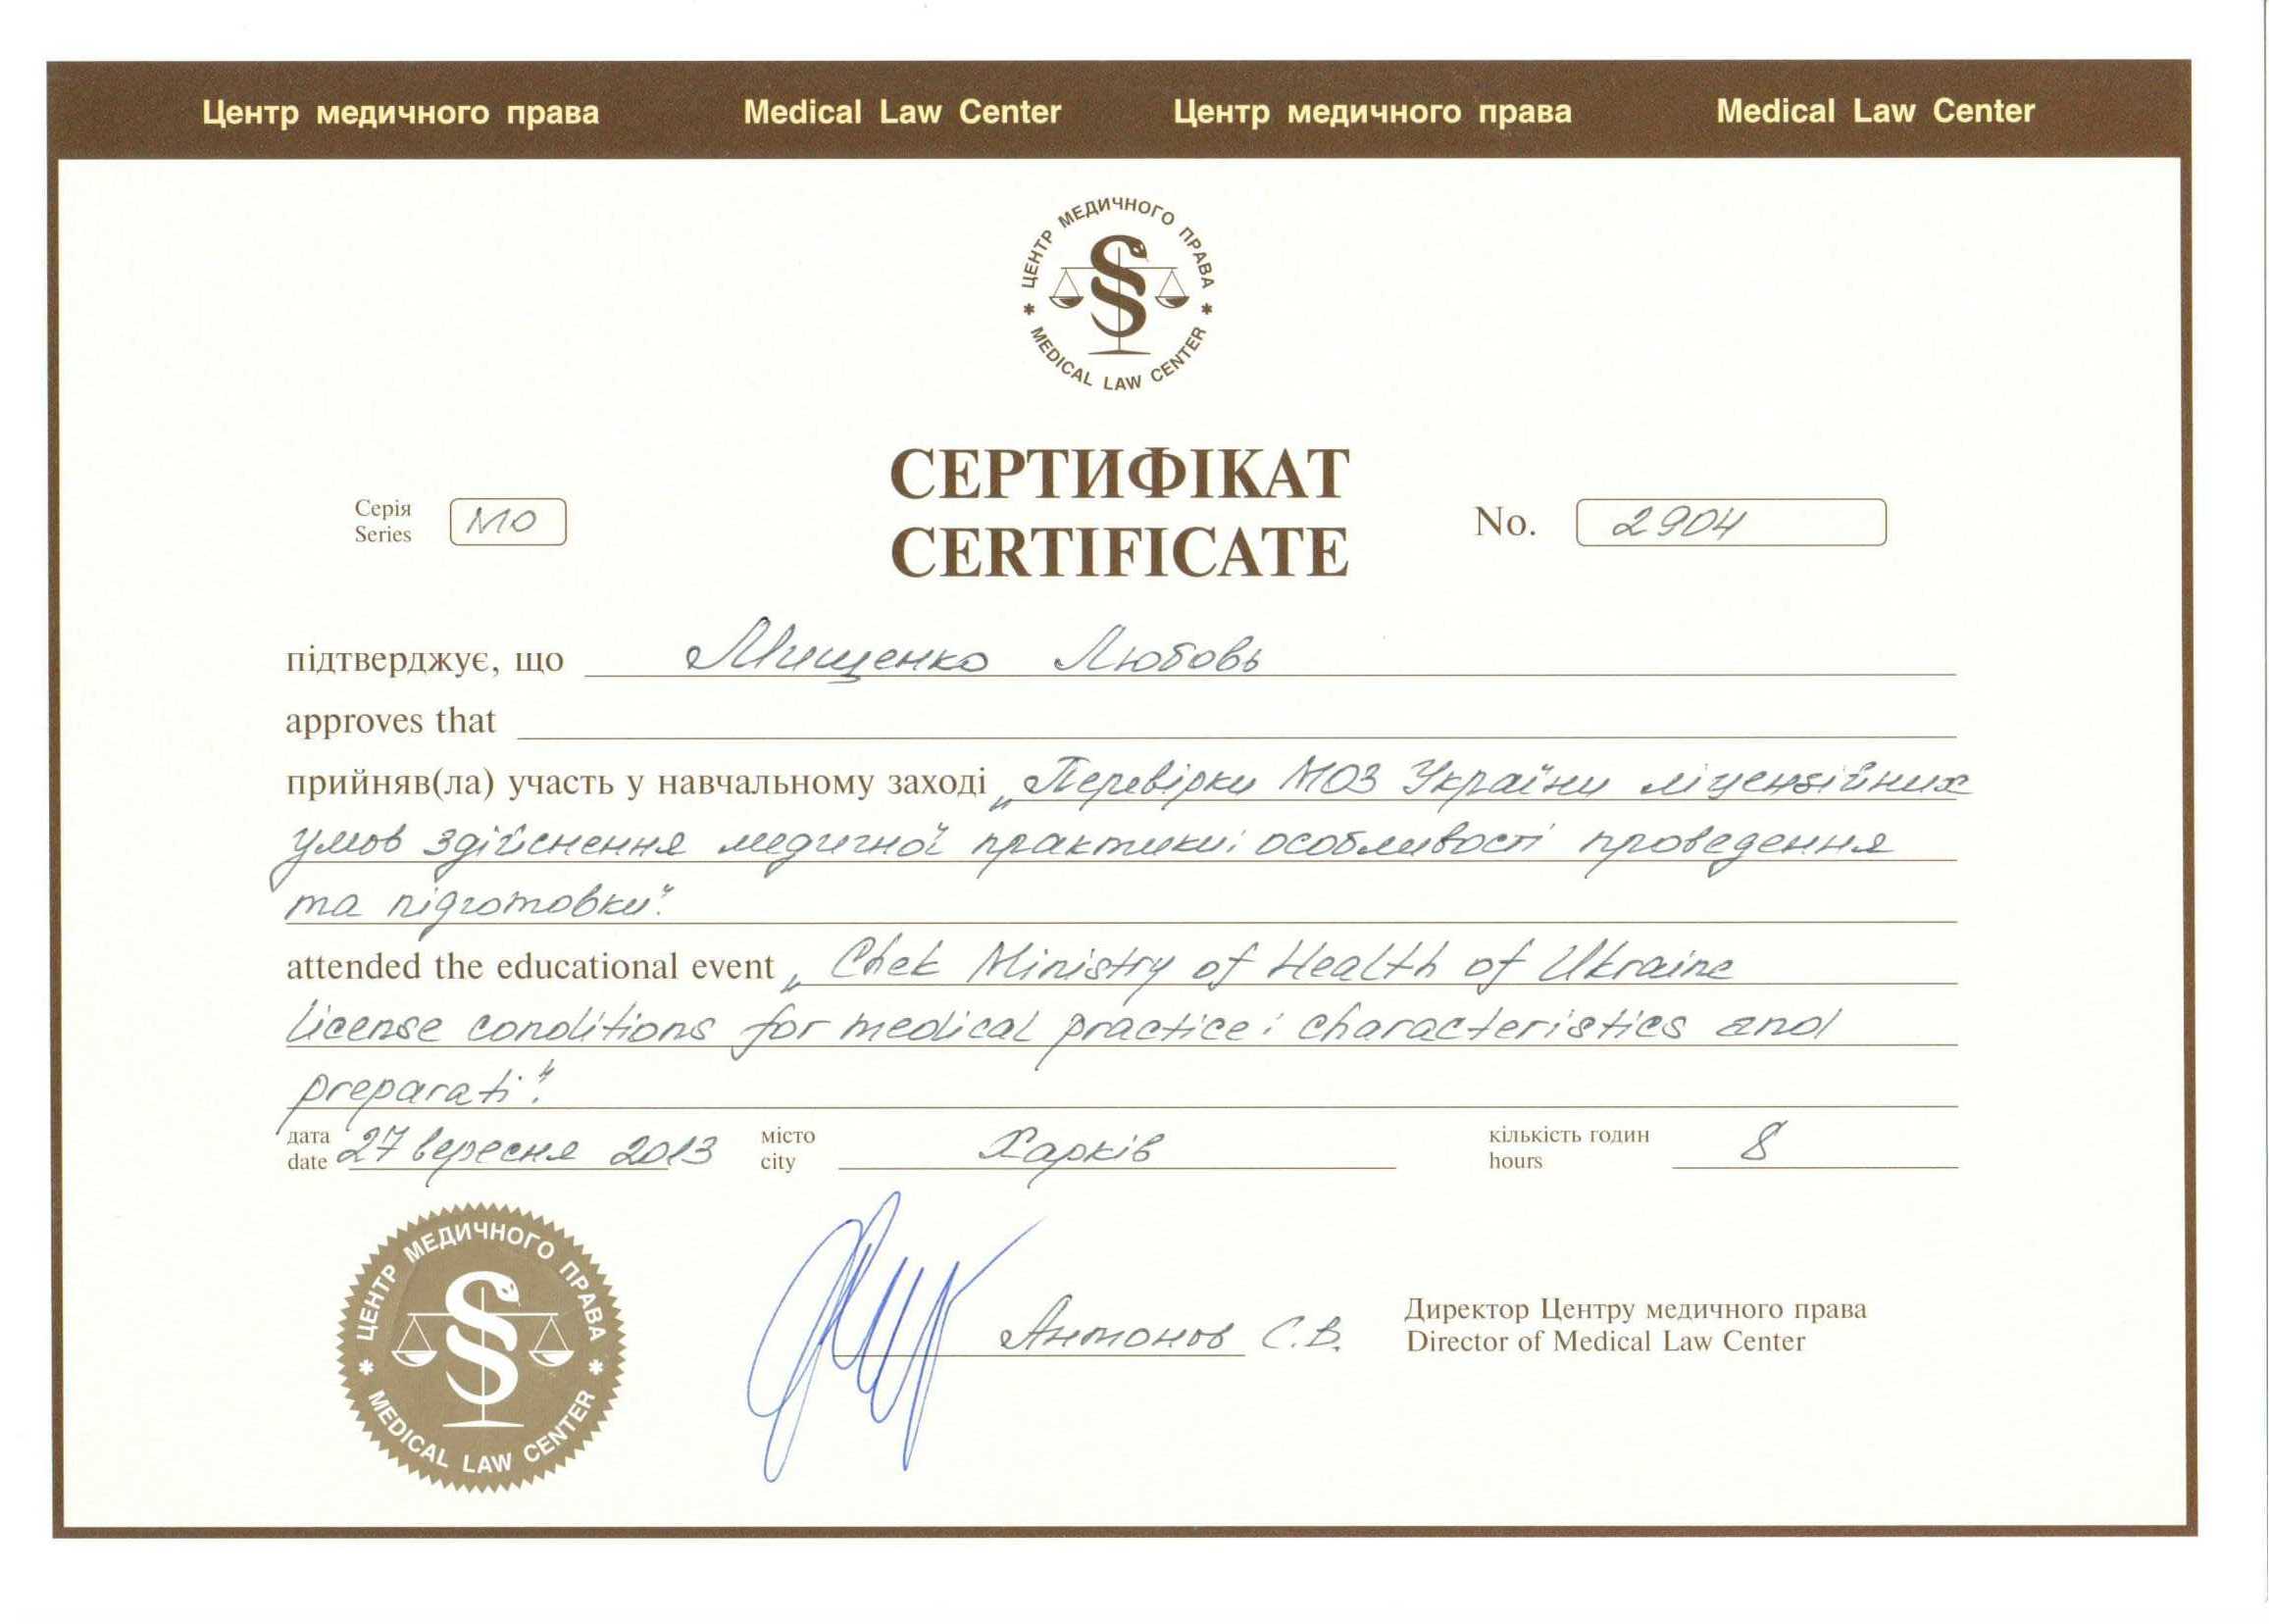 Центр медичного права Medical Law Center Центр медичного права Medical Law Center
ЦЕНТР МЕДИЧНОГО ПРАВА
* MEDICAL LAW CENTER *
СЕРТИФІКАТ
CERTIFICATE
Серія
Series
МО
No. 2904
підтверджує, що Мищенко Любовь
approves that
прийняв(ла) участь у навчальному заході „Перевірки МОЗ України ліцензійних
умов здійснення медичної практики: особливості проведення
та підготовки“.
attended the educational event „Chek Ministry of Health of Ukraine
license conditions for medical practice: characteristics and
preparati“.
дата
date
27 вересня 2013
місто
city
Харків
кількість годин
hours
8
Антонов С.В.
Директор Центру медичного права
Director of Medical Law Center
ЦЕНТР МЕДИЧНОГО ПРАВА
* MEDICAL LAW CENTER *